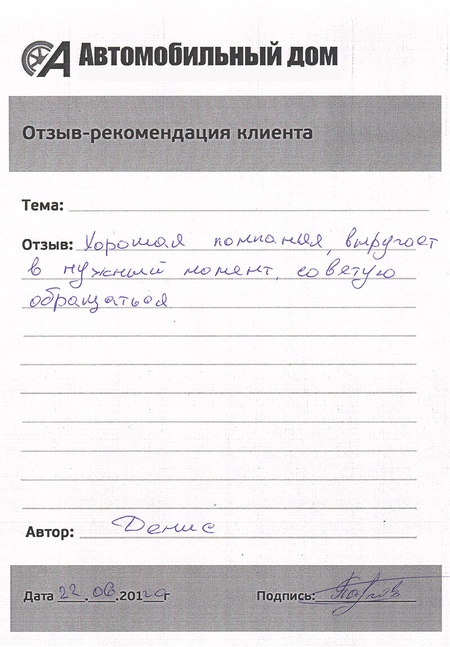 Автомобильный дом
Отзыв-рекомендация клиента
Тема:
Отзыв: Хорошая компания, выручает
в нужный момент, советую
обращаться
Автор: Денис
Дата 22.06.201 г
Подпись: